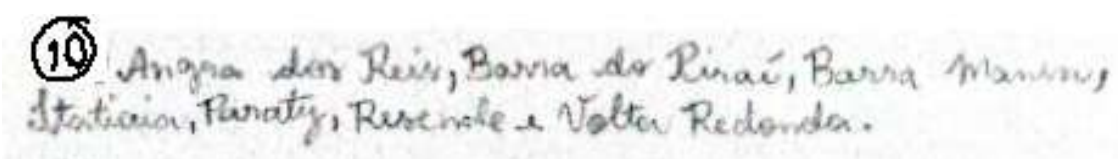 10 Angra dos Reis, Barra do Piraí, Barra Mansa,
Itatiaia, Paraty, Resende e Volta Redonda.